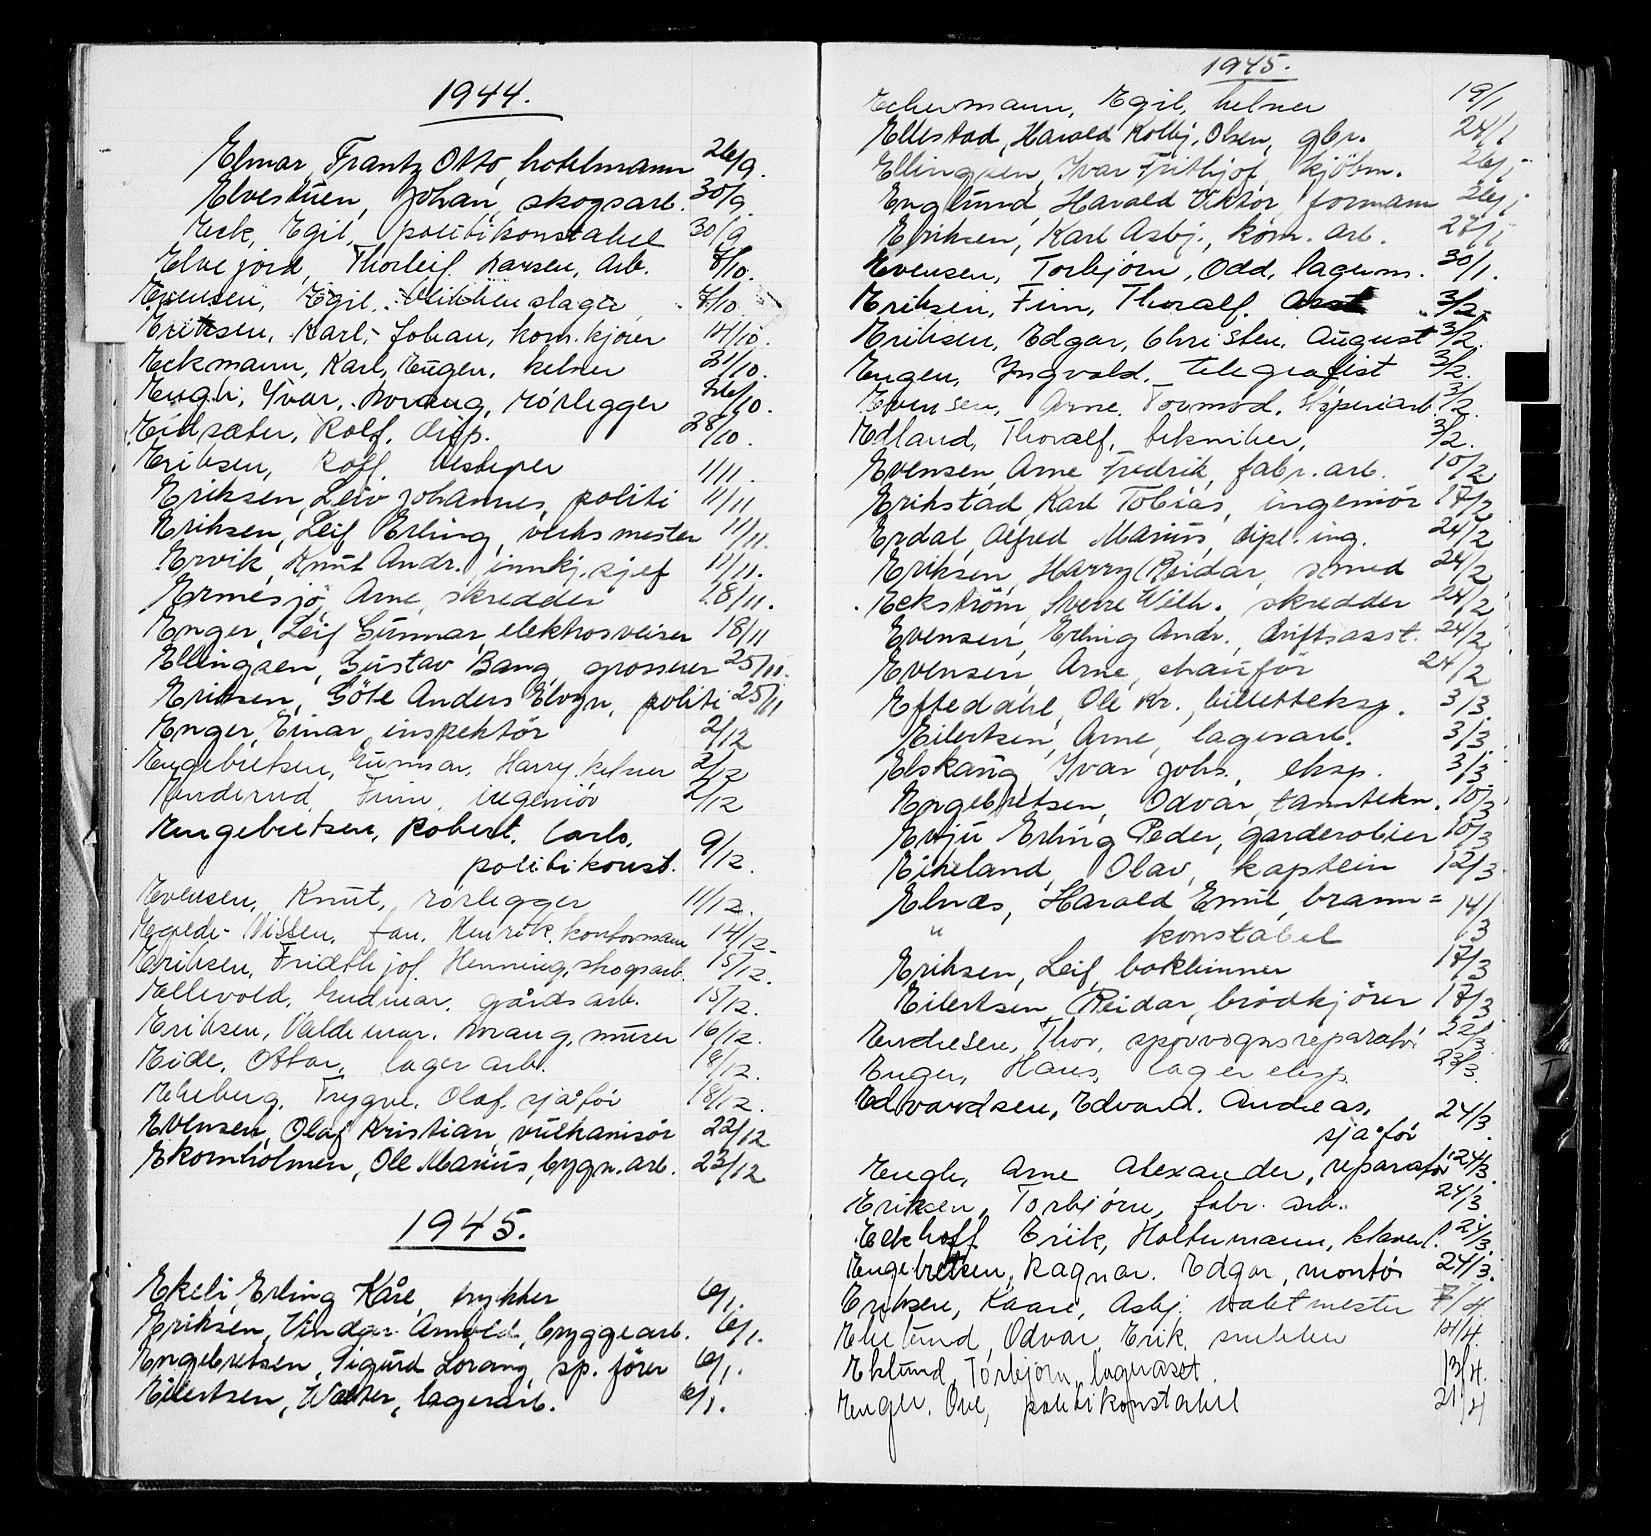 1944.
Elmar, Frantz Otto, hotelmann 26/9.
Elvestuen, Johan, skogsarb. 30/9.
Eck, Egil, politikonstabel 30/9
Elvejord, Thorleif Larsen, Arb. 7/10.
Evensen, Egil. Blikkenslager 7/10.
Eriksen, Karl-Johan, kom. kjører 14/10.
Eckmann, Karl, Eugen, kelner 21/10.
Engh, Ivar, Norang, rørlegger 26/10.
Eidsæter, Rolf. disp. 28/10.
Eriksen, Rolf, 1/11.
Eriksen, Leiv Johannes, politi 11/11
Eriksen, Leif Erling, verksmester 11/11.
Ervik, Knut Andr., innkj. sjef 11/11.
Ermesjö, Arne, skredder 18/11.
Enger, Leif Gunnar, elektrosveiser 18/11
Ellingsen, Gustav Bang, grosserer 25/11.
Eriksen, Göte Anders Elvyn, politi 25/11
Enger, Einar, inspektör 2/12
Engebretsen, Gunnar, Harry, kelner 2/12
Enderud, Finn, ingeniör 2/12
Engebretsen, Robert, Carlo,
politikonst. 9/12.
Evensen, Knut, rörlegger 11/12.
Egede-Nissen, Jan, Henrik, kontormann 14/12.
Eriksen, Fridthjof, Henning, skogsarb. 15/12.
Ellevold, Gudmar, gårdsarb. 15/12.
Eriksen, Valdemar, Norang, murer 16/12.
Eide, Ottar, lagerarb. 18/12.
Ekeberg, Trygve, Olaf, sjåför 18/12.
Evensen, Olaf Kristian, vulkanisör 22/12
Ekornholmen, Ole Marius, bygn. arb. 23/12
1945.
Ekeli, Erling Kåre, trykker 6/1.
Eriksen, Vindar Arnold, bryggearb. 6/1.
Engebretsen, Sigurd Lorang, sp. förer 6/1.
Eilertsen, Walter, lagerarb. 6/1.
1945.
Echermann, Egil, kelner 19/1
Ellestad, Harald Kolbj. Olsen, gbr. 24/1
Ellingsen, Ivar Frithjof, kjöbm. 26/1
Englund, Harald Viktor, formann 26/1
Eriksen, Karl Asbj., kom. arb. 27/1
Evensen, Torbjørn, Odd, lagerm. 30/1.
Eriksen, Finn, Thoralf. 3/2.
Eriksen, Edgar, Christen, August 3/2.
Engen, Ingvald, Telegrafist 3/2.
Evensen, Arne, Tormod, 3/2.
Edland, Thoralf, tekniker, 3/2.
Evensen, Arne Fredrik, fabr. arb. 10/2
Erikstad, Karl Tobias, ingeniör 17/2
Erdal, Alfred Marius, dipl. ing. 24/2
Eriksen, Harry Reidar, smed 24/2
Eckström, Sverre Wilh., skredder 24/2
Evensen, Erling Andr., driftsasst. 24/2
Evensen, Arne, chauför 24/2
Eftedahl, Ole Kr., billetteksp. 3/3.
Eilertsen, Arne, lagerarb. 3/3.
Elskaug, Ivar Johs., eksp. 3/3
Engebretsen, Odvar, tanntekn. 10/3
Evju, Erling Peder, garderobier 10/3
Eikeland, Olav, kaptein 12/3.
Elnæs, Harald Emil, brann= 14/3
" konstabel
Eriksen, Leif, bokbinner 17/3
Eilertsen, Reidar, brödkjörer 17/3
Endresen, Thor, sporvognsreparatör 22/3
Enger, Hans, lagereksp. 23/3.
Edvardsen, Edvard, Andreas, 24/3.
sjåför
Engh, Arne Alexander, reparatör 24/3.
Eriksen, Torbjörn, fabr. arb. 24/3
Eckhoff, Erik, Holtermann, 24/3.
Engebretsen, Ragnar, Edgar, montör 24/3.
Eriksen, Kaare, Asbj. vaktmester 7/4.
Ekelund, Odvar, Erik, snekker 14/4
Eklund, Torbjörn, lagerasst. 13/4.
Enger, Ove, politikonstabel 21/4